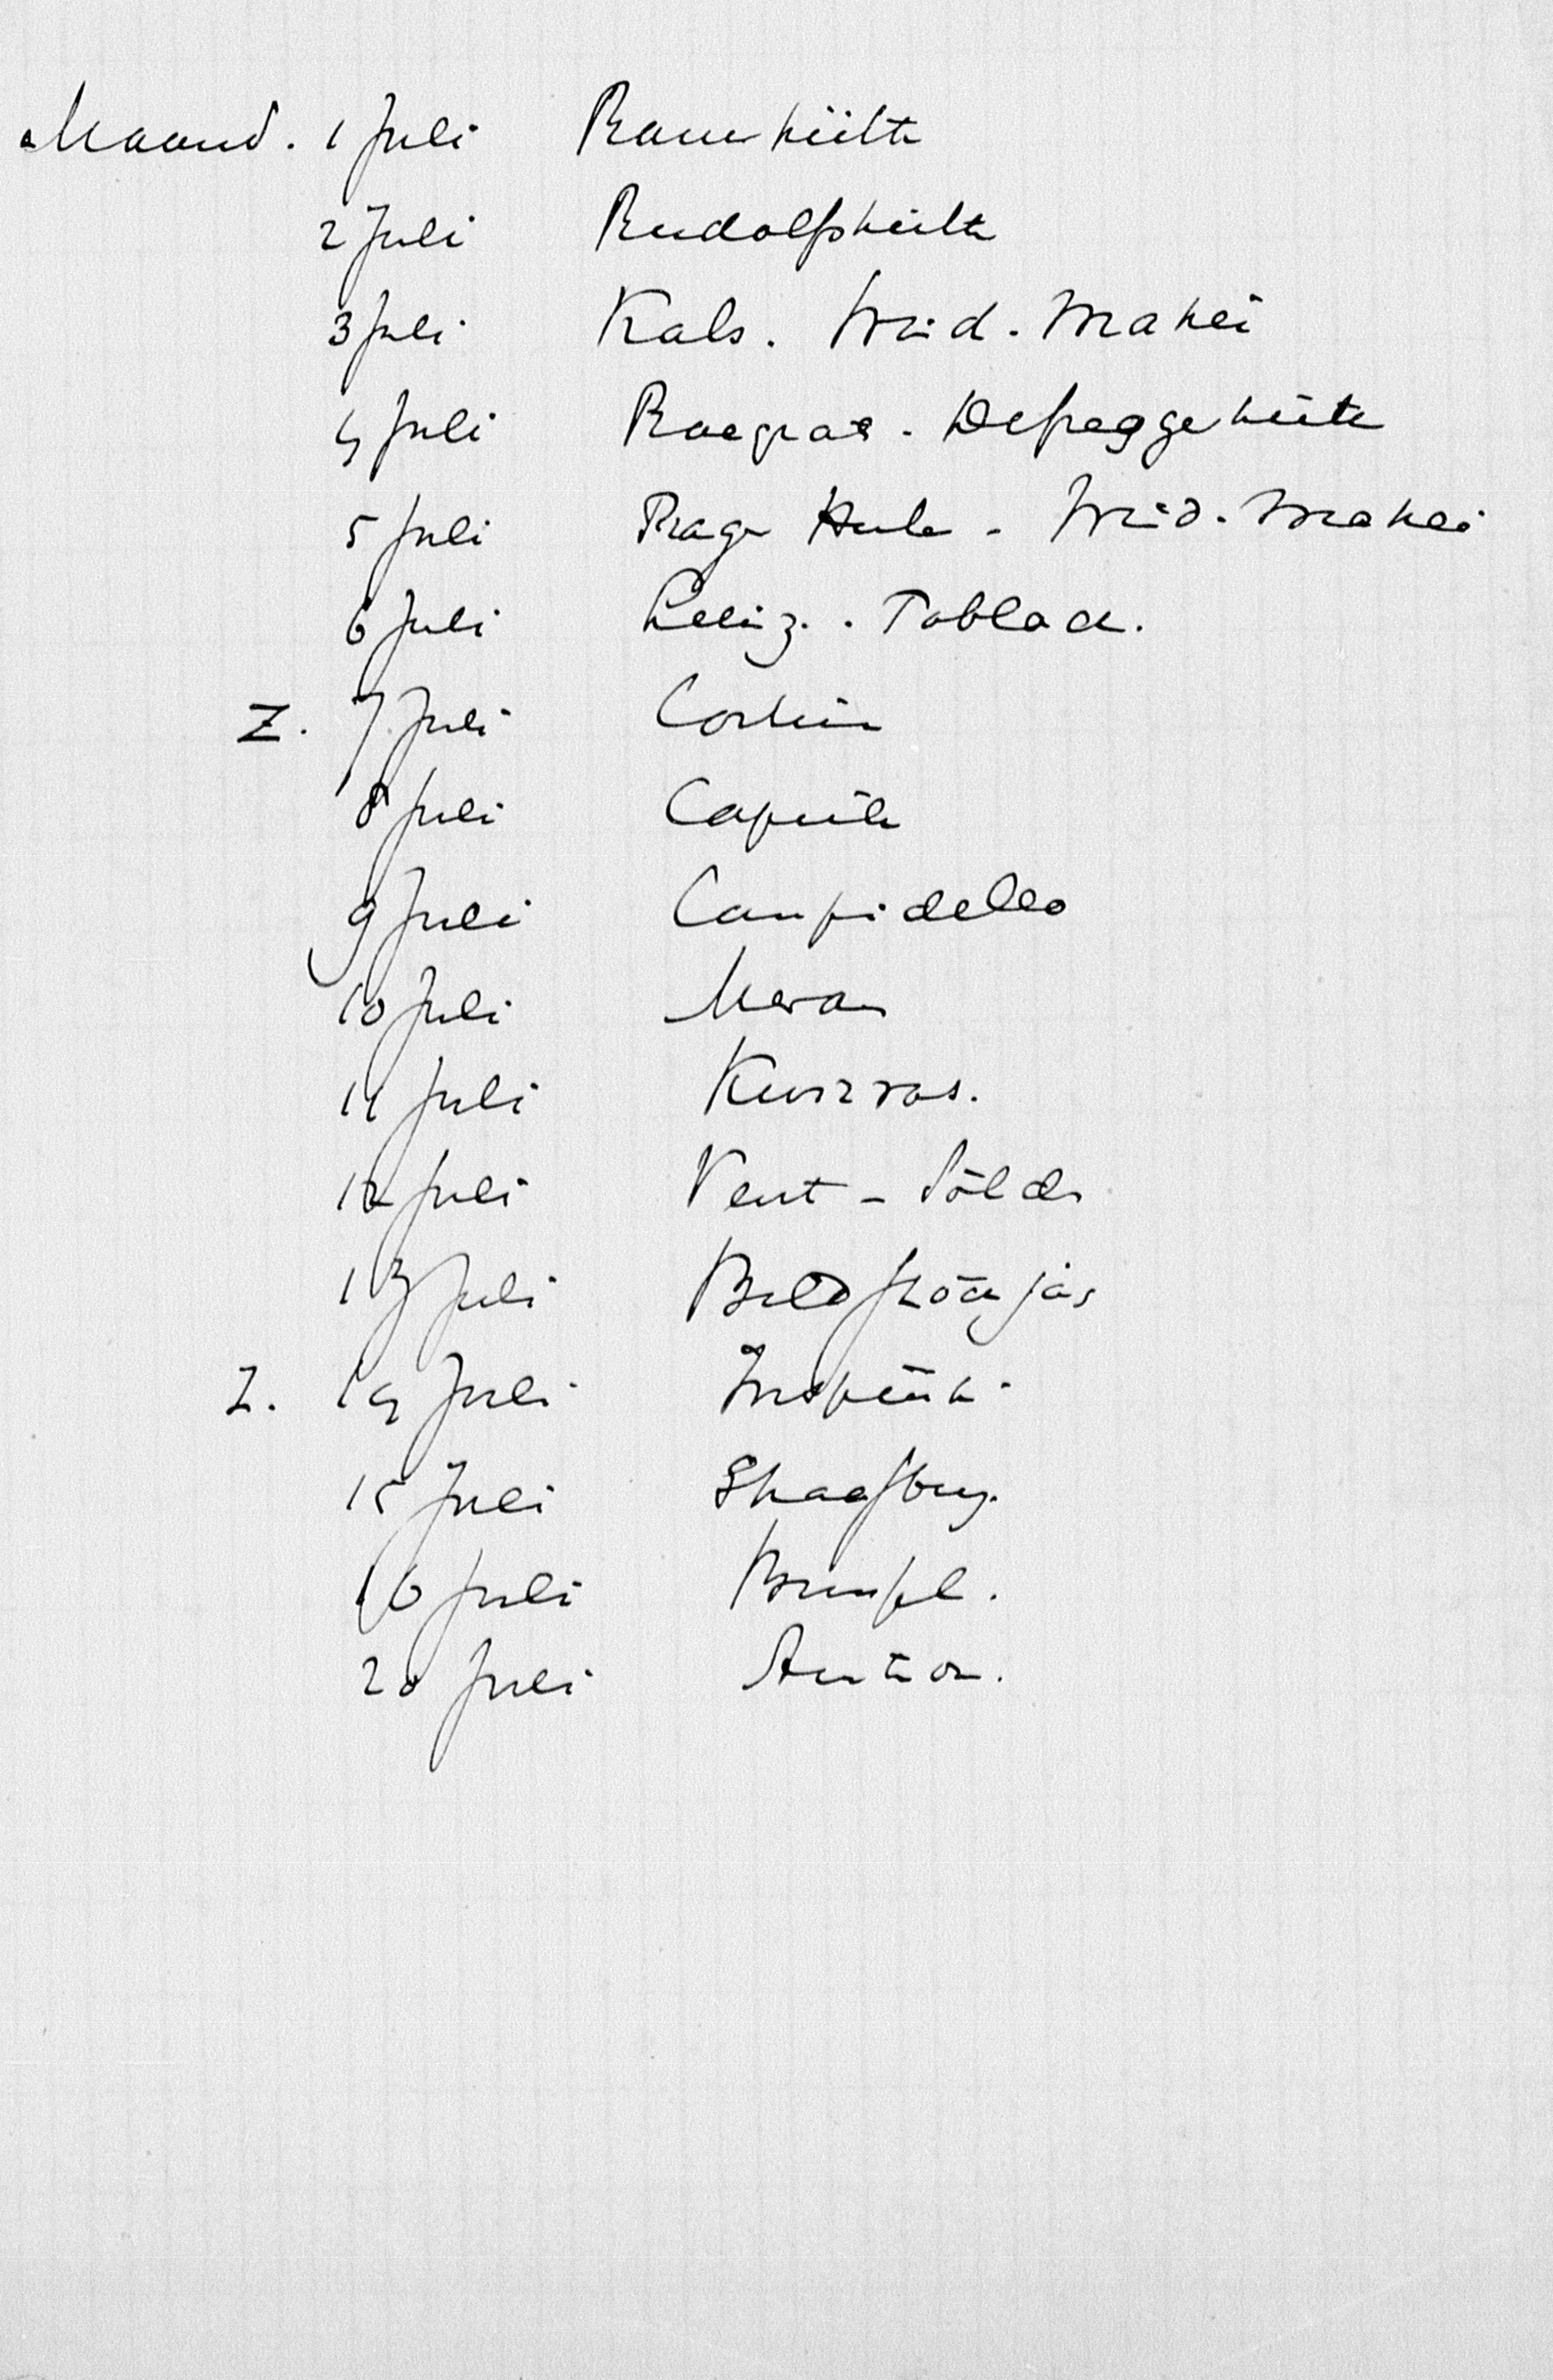 Maand. 1 Juli Rauchhütte
2 Juli Rudolfshütte
3 Juli Kals. Wind. Matrei
4 Juli Praegrat. Defreggerhütte
5 Juli Prager Hütte - Wind. Matrei
6 Juli Lienz. Toblach.
Z. 7 Juli Cortina
8 Juli Caprile
9 Juli Campidello
10 Juli Meran
11 Juli Kurzras.
12 Juli Vent - Sölden
13 Juli Bildstöckljoch
Z. 14 Juli Innsbruck
15 Juli
16 Juli
20 Juli